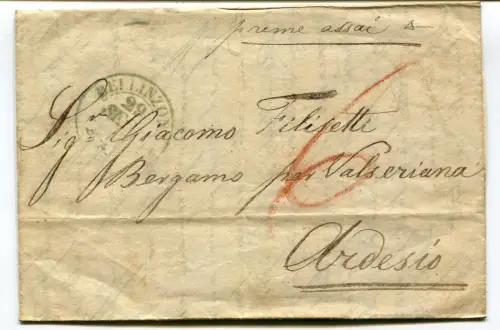 preme assai
BELLINZON
Sig.r Giacomo Filisetti
Bergamo per Valseriana
Ardesio
6